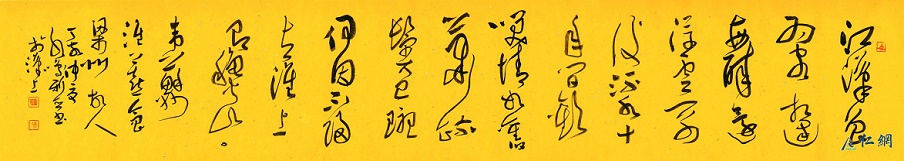 江漢曾
為客相逢
每醉還
浮雲一別
後流水十
年間歡
笑情如舊
蕭疏
鬢已斑
何因不歸
去淮上
有秋山。
韋應物
淮上喜會
梁州故人
丁亥仲夏
於漢上
松網